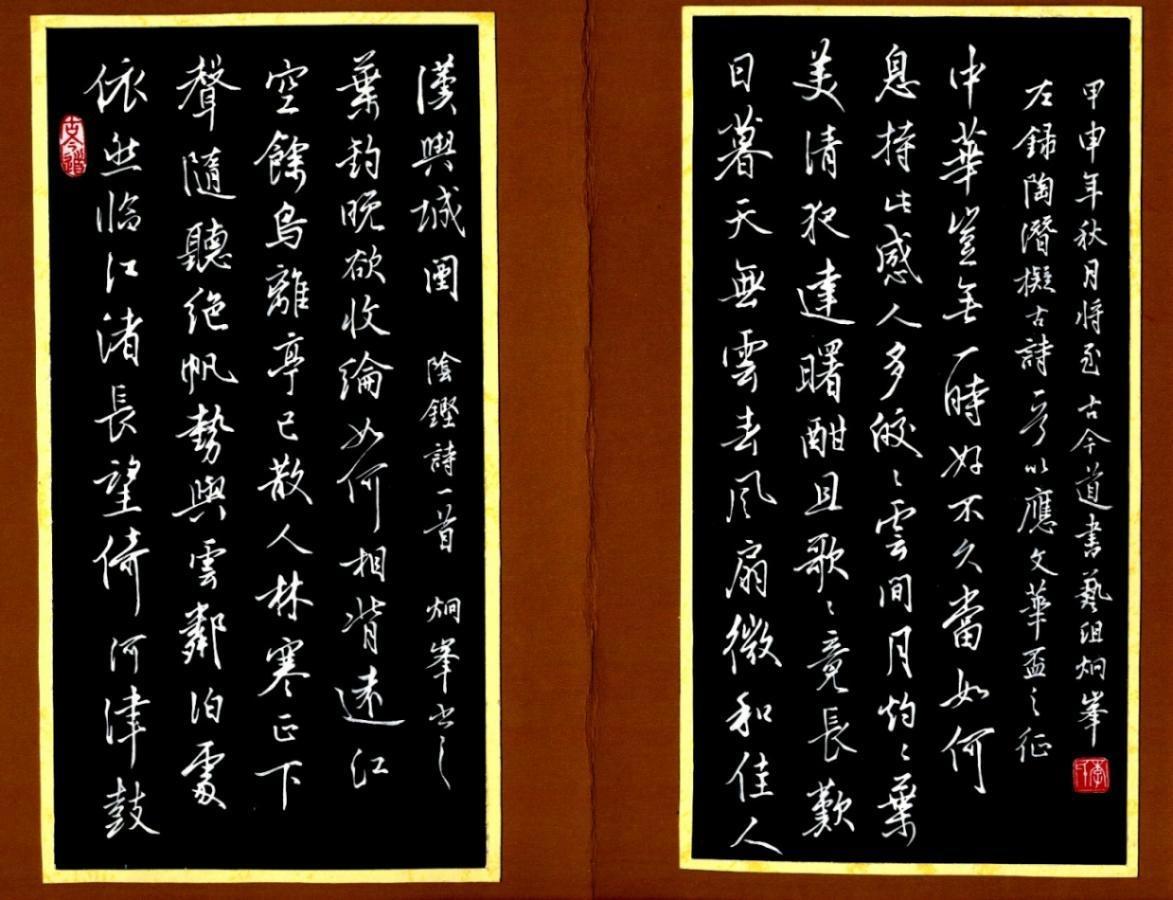 依然臨江渚長望倚河津鼓
聲隨聽絕帆勢與雲鄰泊處
空餘鳥離亭已散人林寒正下
葉釣晚欲收綸如何相背遠江
漢與城闉 陰鏗詩一首 炯峯书之
古今道
日暮天無雲春風扇微和佳人
美清夜達曙酣且歌〻竟長歎
息持此感人多皎〻雲間月灼〻葉
中華豈無一時好不久當如何
左錄陶潛擬古詩以應文華盃之征
甲申年秋月将至古今道書藝炯峯